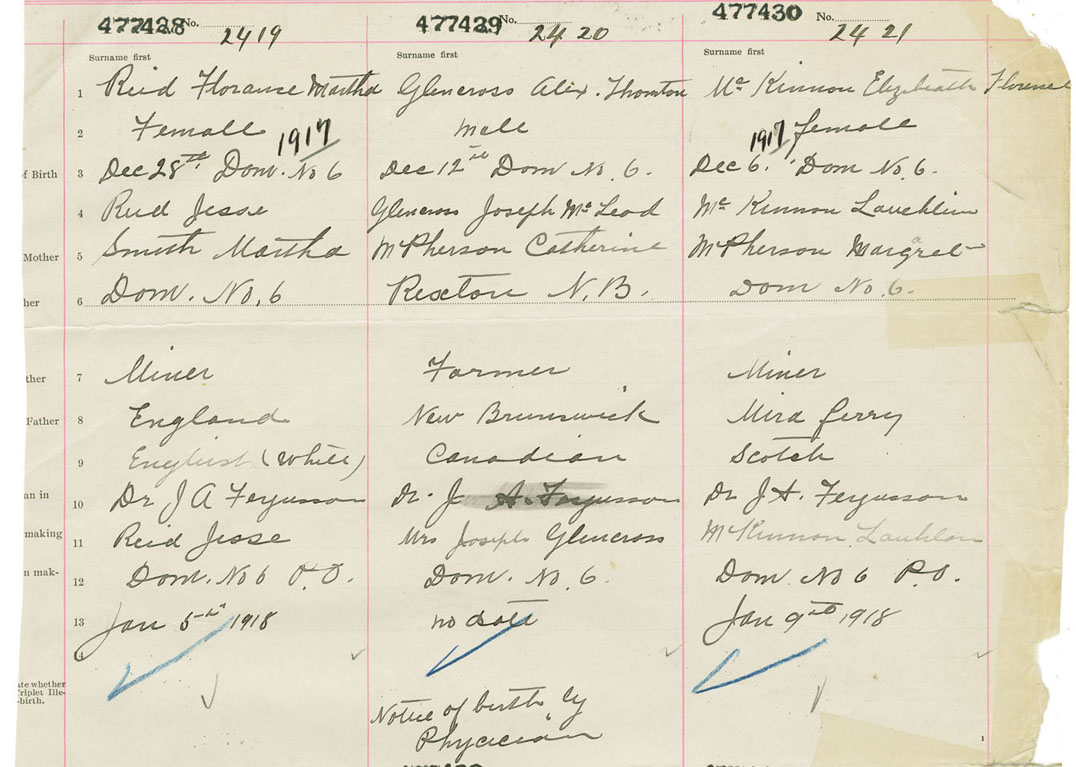 477428 No. 2419
477429 No. 2420
477430 No. 2421
Surname first
Surname first
Surname first
1 Reid Florance Martha
Glencross Alix. Thornton
Mc Kinnon Elizibeath Florence
2 Female
Male
female
1917
1917
of Birth 3 Dec 28th Dom. No 6
Dec 12th Dom No. 6.
Dec 6. Dom No. 6.
4 Reid Jesse
Glencross Joseph McLeod
Mc Kinnon Lauchlin
Mother 5 Smith Martha
McPherson Catherine
McPherson Margret
her 6 Dom. No. 6
Rexton N.B.
Dom No 6.
ther 7 Miner
Farmer
Miner
Father 8 England
New Brunswick
Mira ferry
9 English (White)
Canadian
Scotch
an in 10 Dr J A Fergusson
Dr. J. A. Fergusson
Dr J A. Fergusson
making 11 Reid Jesse
Mrs Joseph Glencross
McKinnon Lauchlin
n mak- 12 Dom. No 6 P.O.
Dom. No. 6.
Dom. No 6 P.O.
13 Jan 5th 1918
no date
Jan 9th 1918
ate whether
Triplet Ille-
-birth.
Notice of birth by
Phycician
1